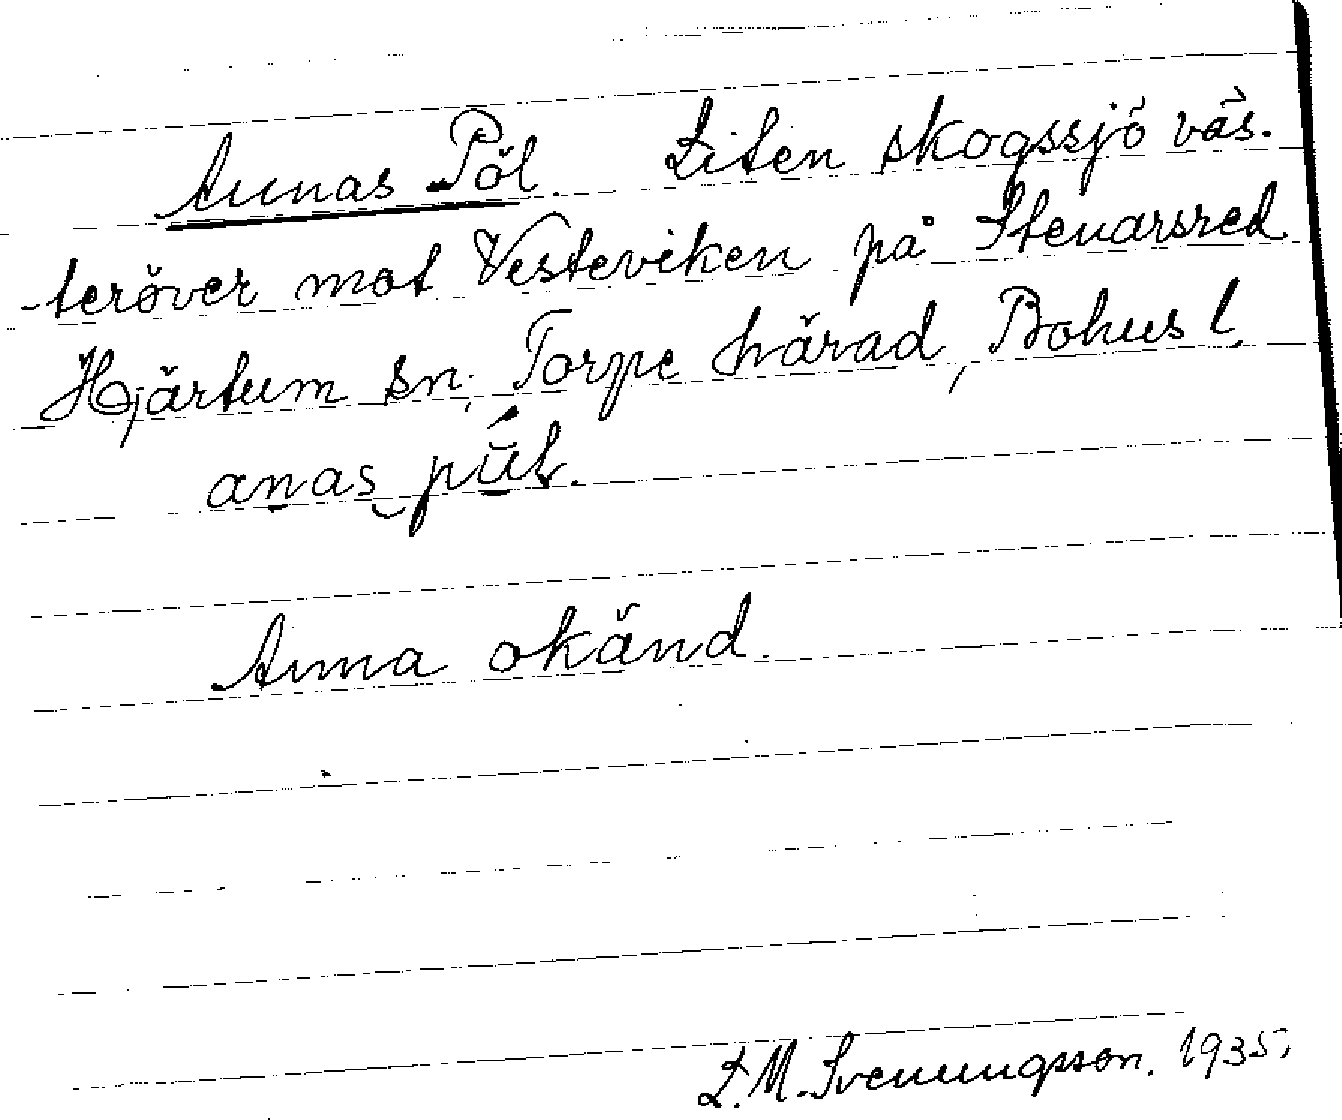 Annas Pöl. Liten skogssjö väs-
teröver mot Vesteviken på Stenarsred
Hjärtum sn, Torpe härad, Bohusl.
anas pul.
Anna okänd.
L. M. Svenungsson. 1935.